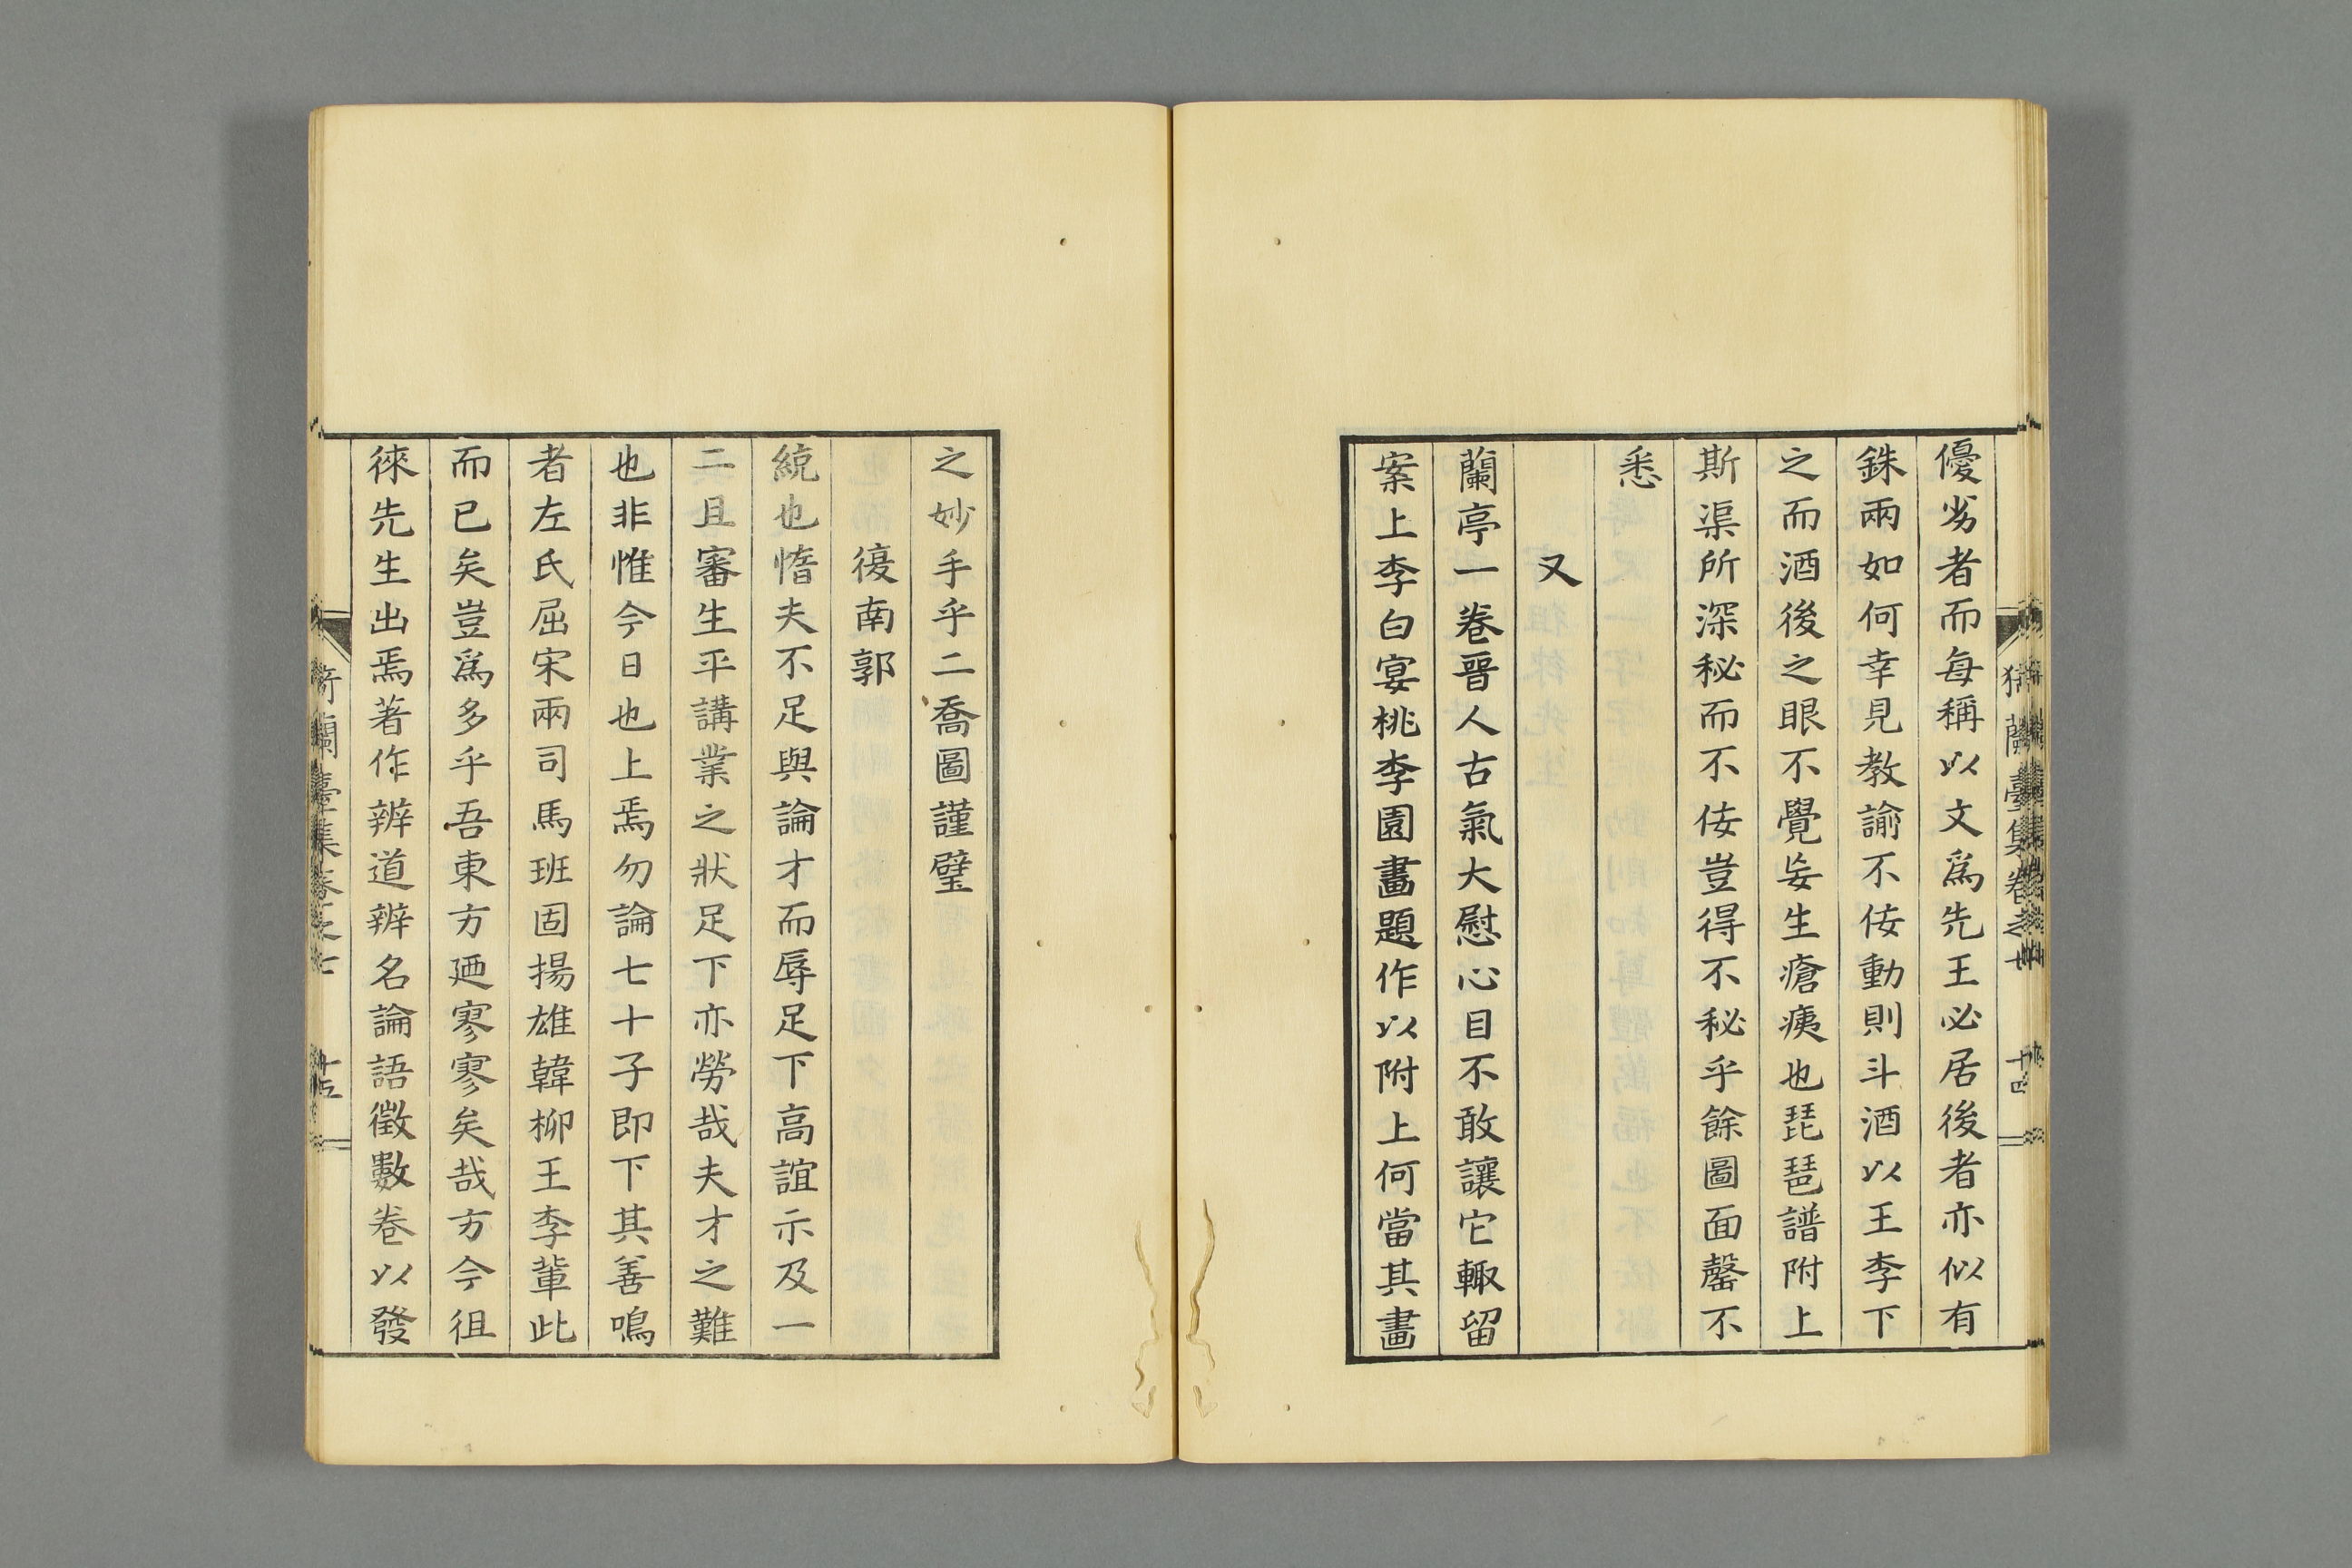 優劣者而每稱以文爲先王必居後者亦似有
銖兩如何幸見教諭不佞動則斗酒以王李下
之而酒後之眼不覺妄生瘡痍也琵琶譜附上
斯渠所深秘而不佞豈得不秘乎餘圖面罄不
悉
又
蘭亭一卷晉人古氣大慰心目不敢讓它輙留
案上李白宴桃李園畫題作以附上何當其畫
之妙手乎二喬圖謹璧
復南郭
統也惰夫不足與論才而辱足下高誼示及一
二且審生平講業之狀足下亦勞哉夫才之難
也非惟今日也上焉勿論七十子即下其善鳴
者左氏屈宋兩司馬班固揚雄韓柳王李輩此
而已矣豈爲多乎吾東方廼寥寥矣哉方今徂
徠先生出焉著作辨道辨名論語徵數卷以發
猗蘭臺集卷之七 十五